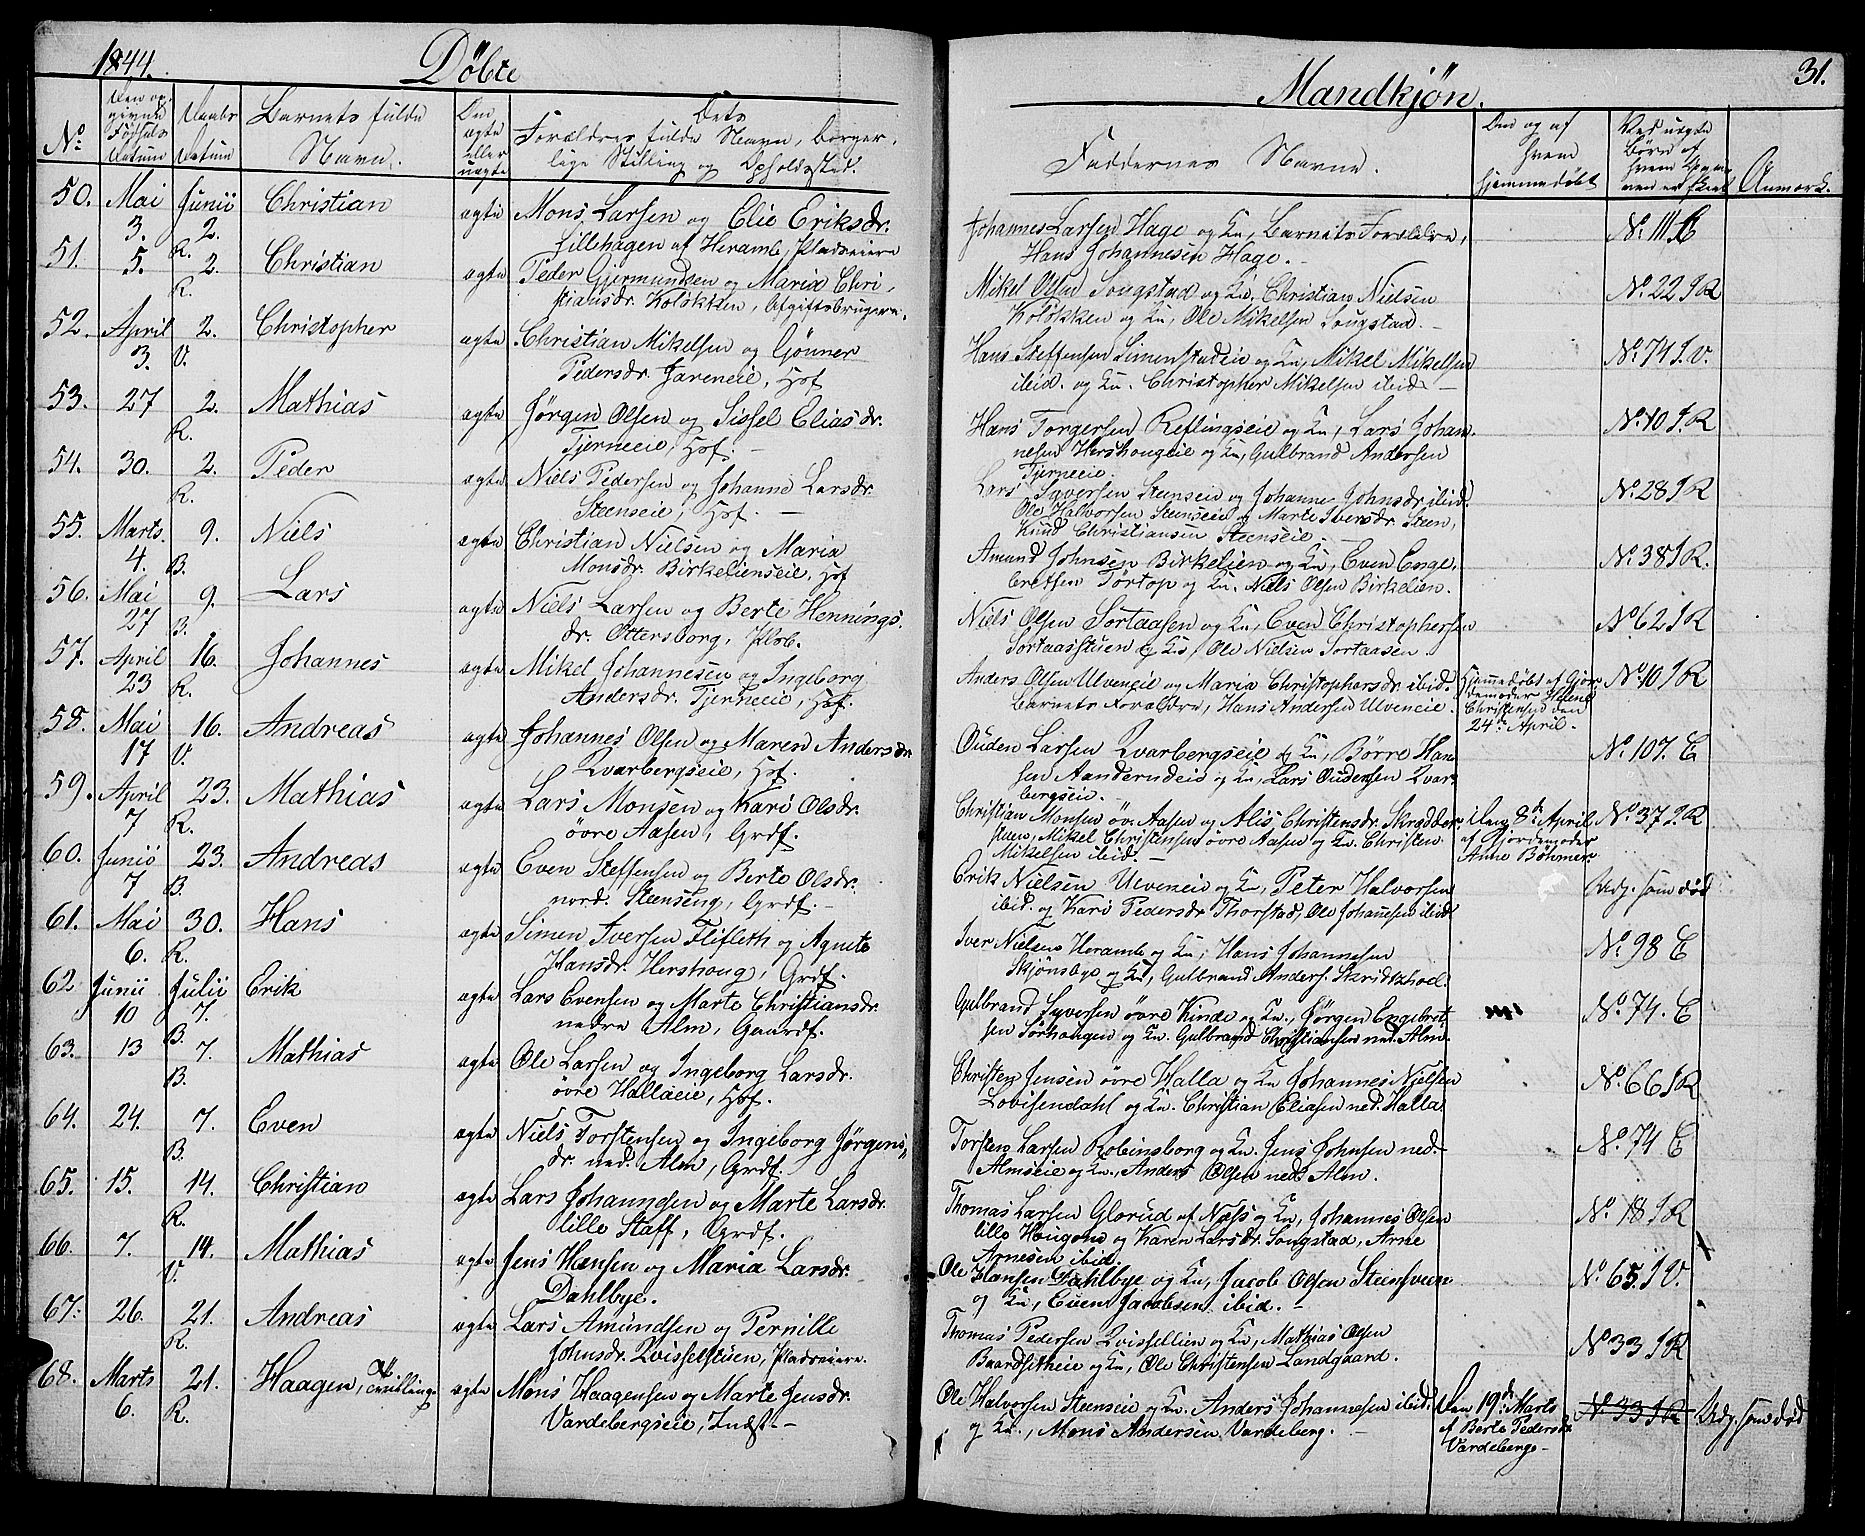 1844. Döbte
No. Den op- givne Fössels Datum Daabs Datum Barnets fulde Navn. Om ægte eller uægte Dets Forældres fulde Navn, borger- lige Stilling og Opholdssted.
50. Mai 3. Junii 2. R. Christian ægte Mons Larsen og Elie Eriksdr.
Lillehagen af Heramb, Pladseiere
51. 5. 2. R. Christian ægte Peder Gjermundsen og Maria Chri-
stiansdr. Kolökken, Afgiftsbrugere.
52. April 3. 2. V. Christopher ægte Christian Mikelsen og Gönner
Pedersdr. Jareneie, Hof
53. 27 2. R. Mathias ægte Jörgen Olsen og Sissel Eliasdr.
Tjerneeie, Hof.
54. 30. 2. R. Peder ægte Niels Pedersen og Johanne Larsdr.
Steenseie, Hof. —
55. Marts. 4. 9. B. Niels ægte Christian Nielsen og Maria
Monsdr. Birkelienseie, Hof
56. Mai 27 9. B. Lars ægte Niels Larsen og Berte Hennings
dr. Ottersborg, Plsb.
57. April 23 16. R. Johannes ægte Mikel Johannesen og Ingeborg
Andersdr. Tjerneeie, Hof.
58. Mai 17 16. V. Andreas ægte Johannes Olsen og Maren Andersdr
Qvarbergseie, Hof.
59. April 7 23. R. Mathias ægte Lars Monsen og Kari Olsdr.
övre Aasen, Grdf.
60. Junii 7 23. B. Andreas ægte Even Steffensen og Berte Olsdr.
nord. Steenseng, Grdf. —
61. Mai 6. 30. R. Hans ægte Simen Iversen Flifleth og Agnete
Hansdr. Hershoug, Grdf.
62 Junii 10 Julii 7. B. Erik ægte Lars Evensen og Marte Christiansdr.
nedre Alm, Gaardf.
63. 13 7. B. Mathias ægte Ole Larsen og Ingeborg Larsdr.
övre Hallaeie, Hof.
64. 24. 7. B. Even ægte Niels Torstensen og Ingeborg Jörgens-
dr. ned. Alm, Grdf.
65. 15. 14. R. Christian ægte Lars Johannesen og Marte Larsdr.
lille Staff, Grdf.
66. 7. 14. V. Mathias ægte Jens Hansen og Maria Larsdr.
Dahlbye.
67. 26. 21. R. Andreas ægte Lars Amundsen og Pernille
Johnsdr. Qvisselstuen, Pladseiere.
68. Marts 6. 21. R. Haagen, ægte Mons Haagensen og Marte Jensdr.
Vardebergseie, Indst —
Mandkjön. 31.
Faddernes Navne. Om og af hvem hjemmedöbt Ved uægte Börn af Anmærk.
Johannes Larsen Hage og Kn, Barnets Forældre, No. 111 E
Hans Johannesen Hage. —
Mikel Olsen Sougstad og Kn. Christian Nielsen No. 22 I R
Kolökken og Kn, Ole Mikelsen Sougstad. —
Hans Steffensen Simenstadeie og Kn, Mikel Mikelsen No. 74 I. V.
ibid. og Kn. Christopher Mikelsen ibid —
Hans Torgersen Reflingseie og Kn, Lars Johan- No. 10 I. R
nesen Hershougeie og Kn, Gulbrand Andersen
Tjerneeie.
Lars Syversen Steenseie og Johanne Johnsdr ibid. No. 28 I R
Ole Halvorsen Steenseie og Marte Iversdr. Steen,
Knud Christiansen Steenseie. —
Amund Johnsen Birkelien og Kn, Even Enge- No. 38 I R.
bretsen Törtop og Kn. Niels Olsen Birkelien.
Niels Olsen Sortaasen og Kn, Even Christophersen No. 62 I R
Sortaasstuen og Kn, Ole Nielsen Sortaasen.
Anders Olsen Ulveneie og Maria Christophersdr. ibid. Hjemmedöbt af Gjor- demoder Helene Christensen den 24de April. No. 10 I R
Barnets Forældre, Hans Andersen Ulveneie.
Ouden Larsen Qvarbergseie og Kn, Börre Han No. 107. E
sen Aanderudeie og Kn, Lars Oudensen Qvar-
bergseie. —
Christian Monsen öv. Aasen og Alis Christensdr. Skrædder- Den 8de April af Gjordemoder Anne Böhmer No. 37 I. R
stuen, Mikel Christensen övre Aasen og Kn. Christen
Mikelsen ibid. —
Erik Nielsen Ulveneie og Kn, Peter Halvorsen Udg. som död
ibid. og Kari Pedersdr Thorstad, Ole Johannesen ibid.
Iver Nielsen Heramb og Kn, Hans Johannesen No. 98 E
Skjönsbye og Kn, Gulbrand Anders. Skridshol.
Gulbrand Syversen övre Kinde og Kn., Jörgen Engebret- No. 74. E
sen Sörhougen og Kn. Gulbrand Christiansen ned. Alm.
Christen Jensen övre Halla og Kn Johannes Nielsen No. 66 I R
Lovisendahl og Kn. Christian Eliasen ned. Halla
Torsten Larsen Robinsborg og Kn. Jens Johnsen ned. No. 74 E
Almseie og Kn., Anders Olsen ned. Alm.
Thomas Larsen Glorud af Næss og Kn, Johannes Olsen No. 18 I R
lille Hougen og Karen Larsdr. Sougstad, Arne
Arnesen ibid.
Ole Hansen Dahlbye og Kn, Jacob Olsen Steensveen No. 65. I V.
og Kn, Even Jacobsen ibid. —
Thomas Pedersen Qvisselien og Kn, Mathias Olsen No 33 I R
Baardsetheie og Kn, Ole Christensen Landgaard.
Ole Halvorsen Steenseie og Kn. Anders Johannesen ibid. Den 19de Marts af Berte Pedersdr Vardeberge — No 33 I R Udg. som död
og Kn., Mons Andersen Vardeberg. —